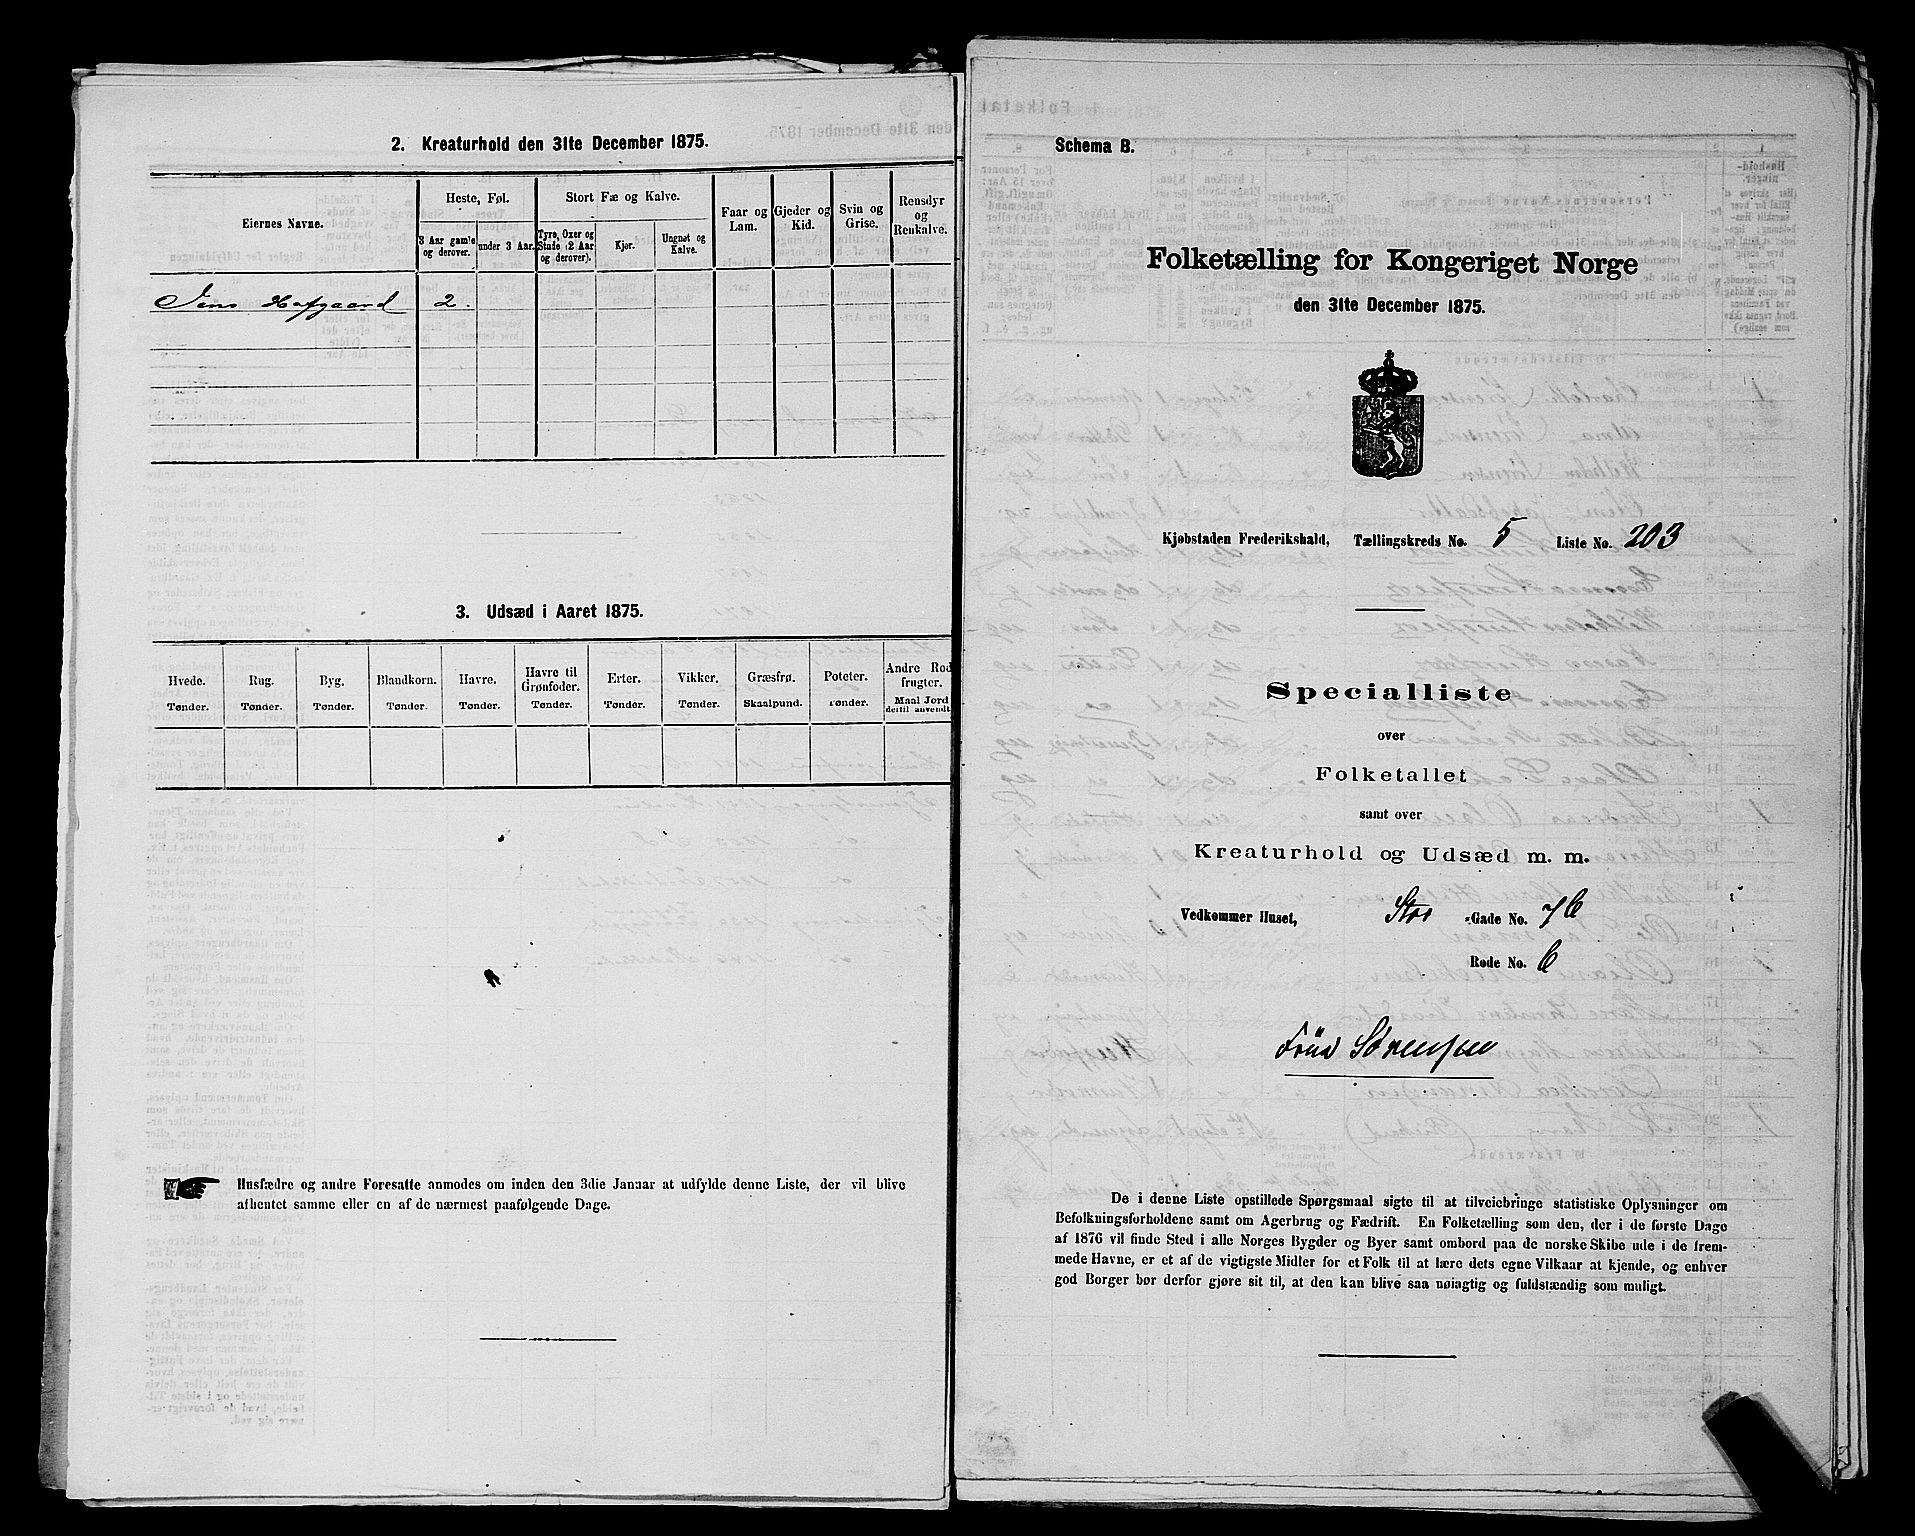 2. Kreaturhold den 31te December 1875.
Eiernes Navne.
Heste, Føl.
Stort Fæ og Kalve.
Faar og Lam.
Gjeder og Kid.
Svin og Grise.
Rensdyr og Renkalve.
3 Aar gamle og derover.
under 3 Aar.
Tyre, Oxer og Stude (2 Aar og derover).
Kjør.
Ungnøt og Kalve.
Jens Hafgaard 2
3. Udsæd i Aaret 1875.
Hvede. Tønder.
Rug. Tønder.
Byg. Tønder.
Blandkorn. Tønder.
Havre. Tønder.
Havre til Grønfoder. Tønder.
Erter. Tønder.
Vikker. Tønder.
Græsfrø. Skaalpund.
Poteter. Tønder.
Andre Rodfrugter. Maal Jord dertil anvendt
Husfædre og andre Foresatte anmodes om inden den 3die Januar at udfylde denne Liste, der vil blive
afhentet samme eller en af de nærmest paafølgende Dage.
Schema B.
Folketælling for Kongeriget Norge
den 31te December 1875.
Kjøbstaden Frederikshald, Tællingskreds No. 5 Liste No. 203
Specialliste
over
Folketallet
samt over
Kreaturhold og Udsæd m. m.
Vedkommer Huset, Stor -Gade No. 7b
Rode No. 6
Sørensen
De i denne Liste opstillede Spørgsmaal sigte til at tilveiebringe statistiske Oplysninger om
Befolkningsforholdene samt om Agerbrug og Fædrift. En Folketælling som den, der i de første Dage
af 1876 vil finde Sted i alle Norges Bygder og Byer samt ombord paa de norske Skibe ude i de frem-
mede Havne, er et af de vigtigste Midler for et Folk til at lære dets egne Vilkaar at kjende, og enhver
god Borger bør derfor gjøre sit til, at den kan blive saa nøiagtig og fuldstændig som muligt.